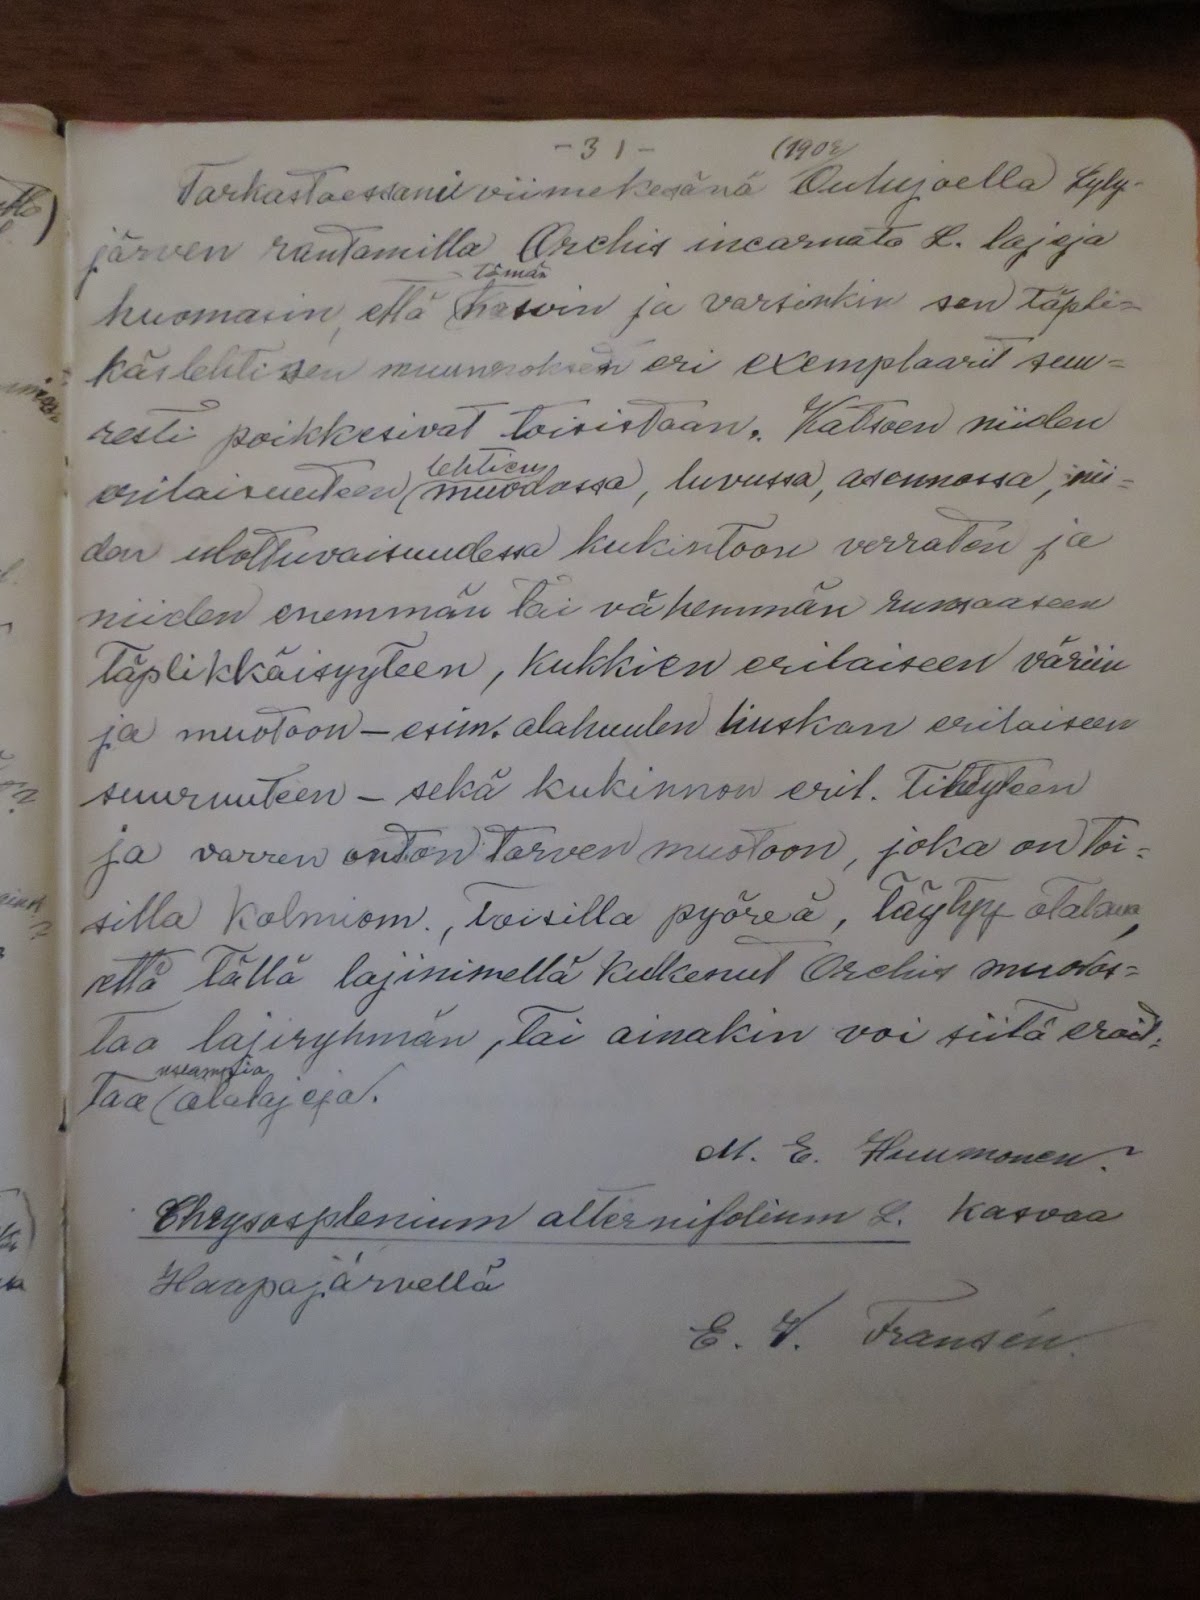 - 31 - (1902)
Tarkastaessani viimekesänä Oulujoella Lyly-
järven rantamilla Orchis incarnata L. lajeja
tämän
huomasin, että kasvin ja varsinkin sen täpli=
käslehtisen muunnoksen eri exemplaarit suu=
resti poikkesivat toisistaan. Katsoen niiden
lehtien
erilaisuuteen (muodossa, luvussa, asennossa, nii=
den ulottuvaisuudessa kukintoon verraten ja
niiden enemmän tai vähemmän runsaaseen
täplikkäisyyteen, kukkien erilaiseen väriin
ja muotoon – esim. alahuulen liuskan erilaiseen
suuruuteen – sekä kukinnon eril. tiheyteen
ja varren onton torven muotoon, joka on toi=
silla kolmiom., toisilla pyöreä, täytyy otaksua,
että tällä lajinimellä kulkenut Orchis muodos=
taa lajiryhmän, tai ainakin voi siitä eroit=
useampia
taa (alalajeja.
M. E. Huumonen.
Chrysosplenium alternifolium L. kasvaa
Haapajärvellä
E. V. Fransén.